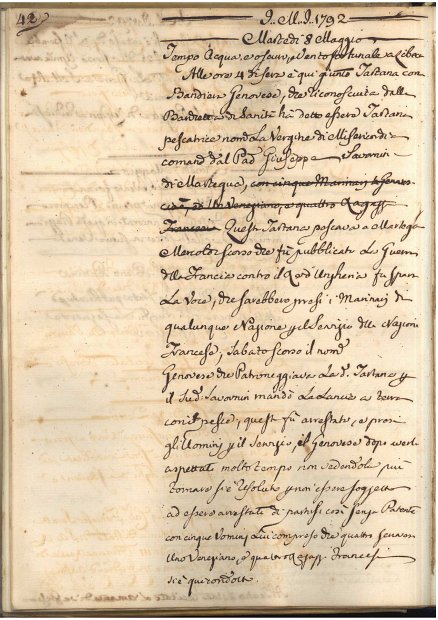 42
G. M. G. 1792
Martedi 8 Maggio
Tempo Acqua, e oscuro, Vento fortunale
Alle ore 4 di sera è qui giunto Tartana con
Bandiera Genovese, che riconosciuta dalle
di Sanità hà detto essere Tartana
pescatrice nom.a La Vergine di Misericordia
comand. dal Pad. Giuseppe
di Martequa, con cinque Marinaj
e quattro Ragazzi
Francesi Questa Tartana pescava a
Mercoldi scorso che fù pubblicata La Guerra
dalla Francia contro il Rè d'Ungheria fù sparsa
La Voce, che sarebbero presi i Marinari di
qualunque Nazione p. el servizio della Nazione
Francese, Sabato scorso il nom.o
Genovese che Patroneggiava La d.a Tartana p.
il Sud.o mandò La Lancia a terra
con il pesce, questa fù arrestata, e presi
gli Uomini p. il servizio, il Genovese dopo averli
aspettati molto tempo non vedendoli più
tornare si è risoluto p. non essere soggetto
ad essere arrestato di partirsi così senza Patente
con cinque Uomini Lui compreso che quattro Genovesi
Uno Veneziano, e quattro Ragazzi Francesi
si è qui condotta.